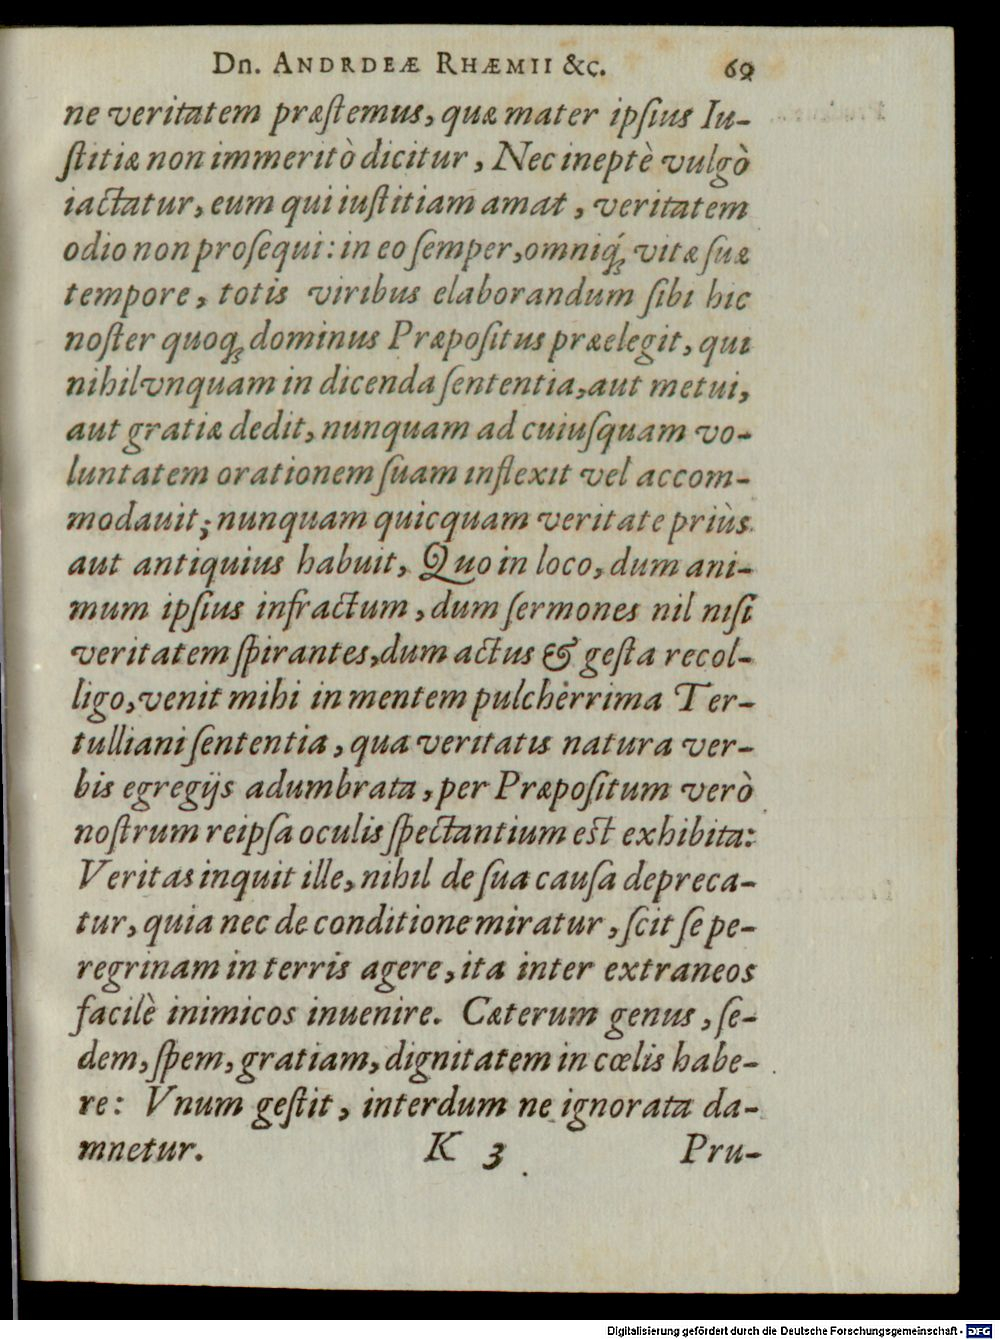 Dn. ANDRDEÆ RHÆMII &c. 69
ne veritatem præſtemus, quæ mater ipſius Iu-
ſtitiæ non immeritò dicitur, Nec ineptè vulgò
iactatur, eum qui iuſtitiam amat, veritatem
odio non proſequi: in eo ſemper, omniq́ꝫ vitæ ſuæ
tempore, totis viribus elaborandum ſibi hic
noſter quoqꝫ dominus Præpoſitus præelegit, qui
nihil vnquam in dicenda ſententia, aut metui,
aut gratiæ dedit, nunquam ad cuiuſquam vo-
luntatem orationem ſuam inflexit vel accom-
modauit; nunquam quicquam veritate priùs
aut antiquius habuit, Quo in loco, dum ani-
mum ipſius infractum, dum ſermones nil niſi
veritatem ſpirantes, dum actus & geſta recol-
ligo, venit mihi in mentem pulcherrima Ter-
tulliani ſententia, qua veritatis natura ver-
bis egregijs adumbrata, per Præpoſitum verò
noſtrum reipſa oculis ſpectantium eſt exhibita:
Veritas inquit ille, nihil de ſua cauſa depreca-
tur, quia nec de conditione miratur, ſcit ſe pe-
regrinam in terris agere, ita inter extraneos
facilè inimicos inuenire. Cæterum genus, ſe-
dem, ſpem, gratiam, dignitatem in cœlis habe-
re: Vnum geſtit, interdum ne ignorata da-
mnetur. K 3 Pru-
Digitalisierung gefördert durch die Deutsche Forschungsgemeinschaft - DFG